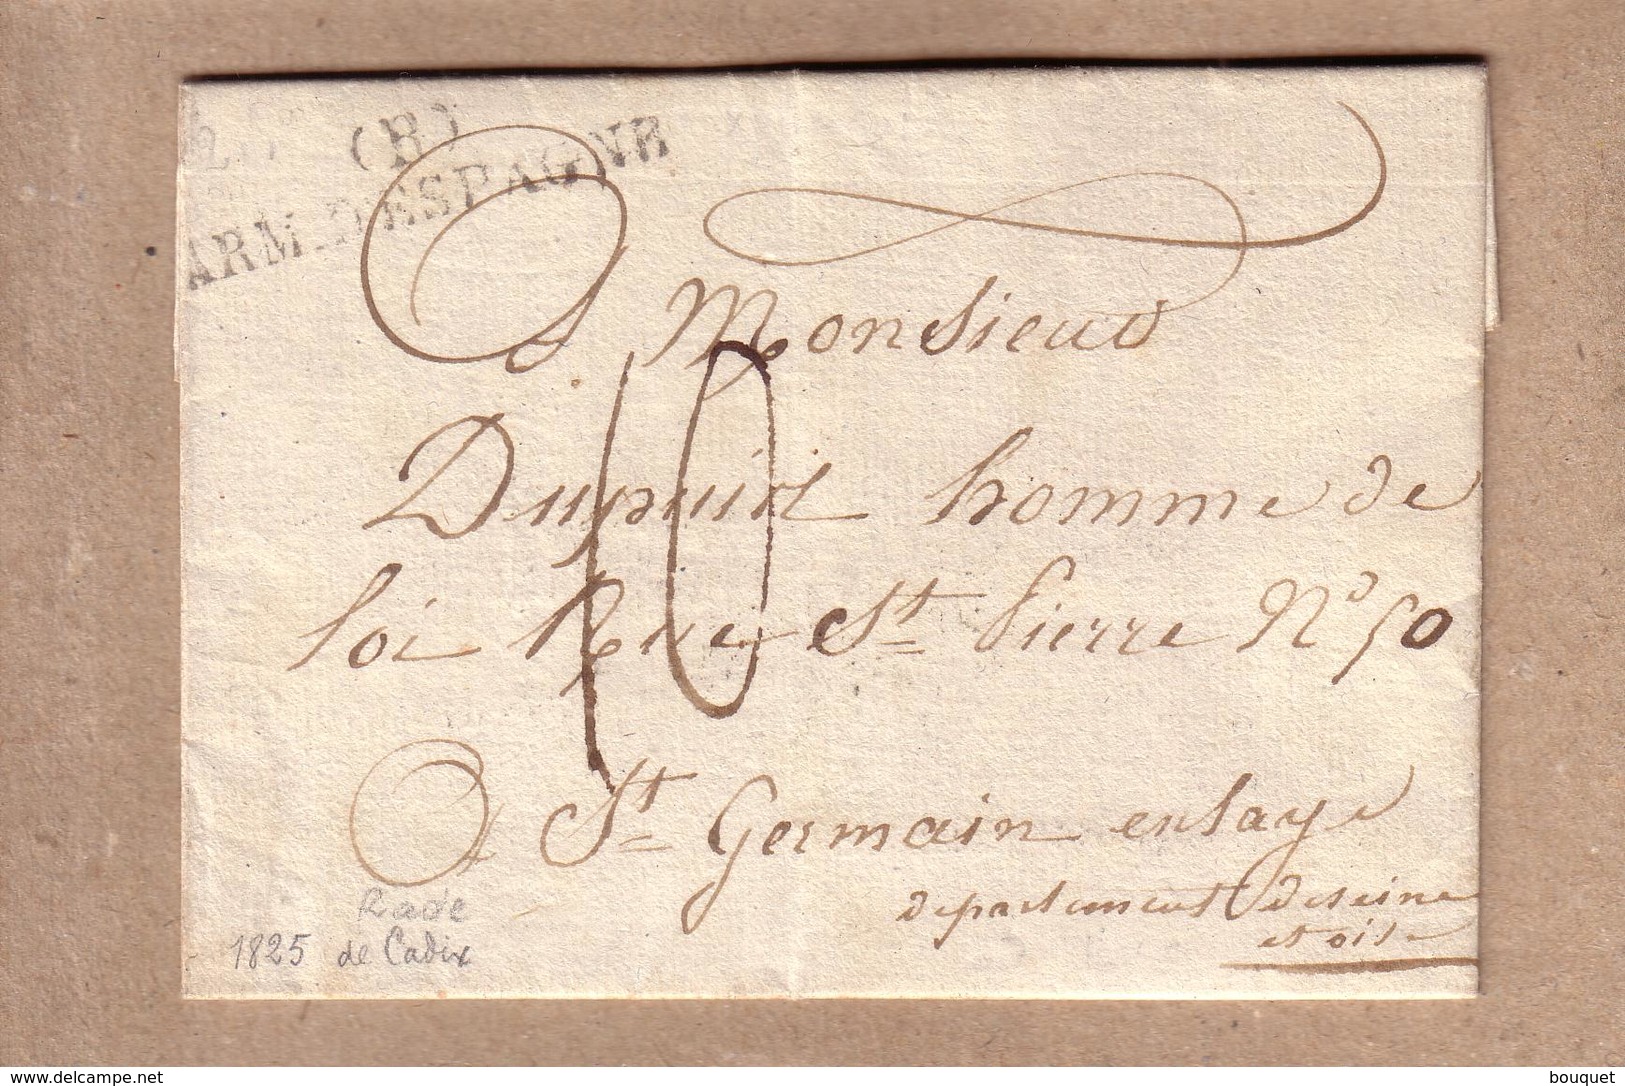 (B)
ARM. D'ESPAGNE
A Monsieur
10
Dupuis homme de
loi Rue St Pierre No 50
A St Germain enlaye
departement deseine
et oise
Rade
1825 de Cadix
delcampe.net
bouquet